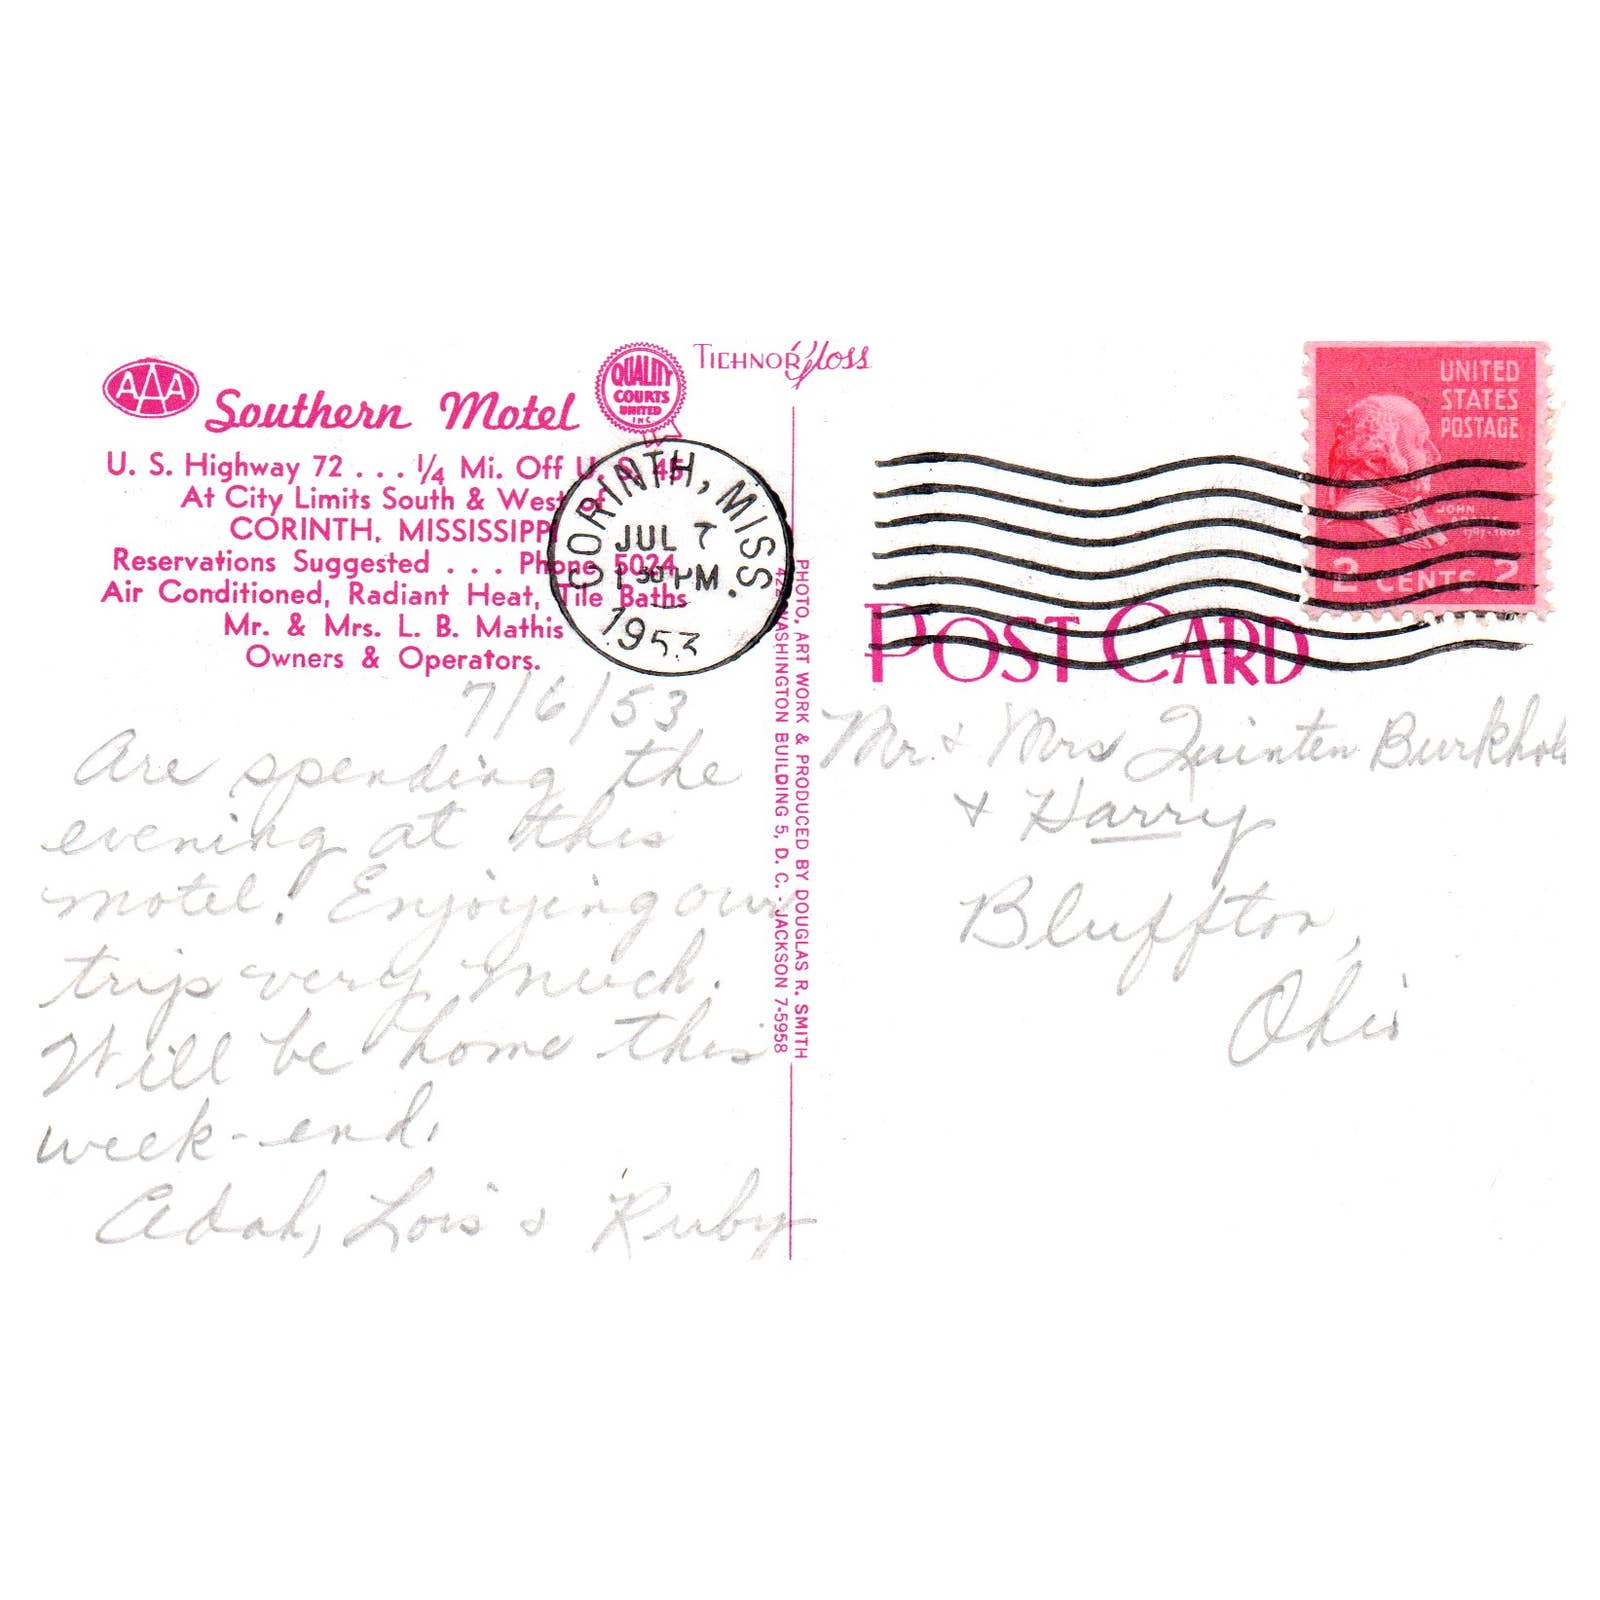 AAA
Southern Motel
QUALITY
COURTS
UNITED
INC
TICHNOR Gloss
U. S. Highway 72 . . . 1/4 Mi. Off U. S. 45
At City Limits South & West of
CORINTH, MISSISSIPPI
Reservations Suggested . . . Phone 5024
Air Conditioned, Radiant Heat, Tile Baths
Mr. & Mrs. L. B. Mathis
Owners & Operators.
CORINTH, MISS.
JUL 7
1 30 PM
1953
7/6/53
Are spending the
evening at this
motel. Enjoying our
trip very much.
Will be home this
week-end.
Adah, Lois & Ruby
PHOTO, ART WORK & PRODUCED BY DOUGLAS R. SMITH
422 WASHINGTON BUILDING 5, D. C. - JACKSON 7-5958
UNITED
STATES
POSTAGE
JOHN
2 CENTS 2
POST CARD
Mr. & Mrs Quinten
& Harry
Bluffton,
Ohio